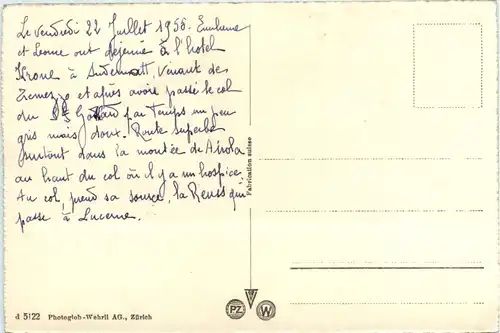 Le vendredi 22 Juillet 1958.
et Leonce ont déjeuné à l'hotel
Krone à Andermatt, venant des
Tremezzo et après avoir passé le col
du St Gottard par temps un peu
gris mais doux. Route superbe
surtout dans la montée de Airolo
au haut du col où il y a un hospice.
Au col, prend sa source, la Reuss qui
passe à Lucerne.
Fabrication suisse
d 5122 Photoglob-Wehrli AG., Zürich
PZ W